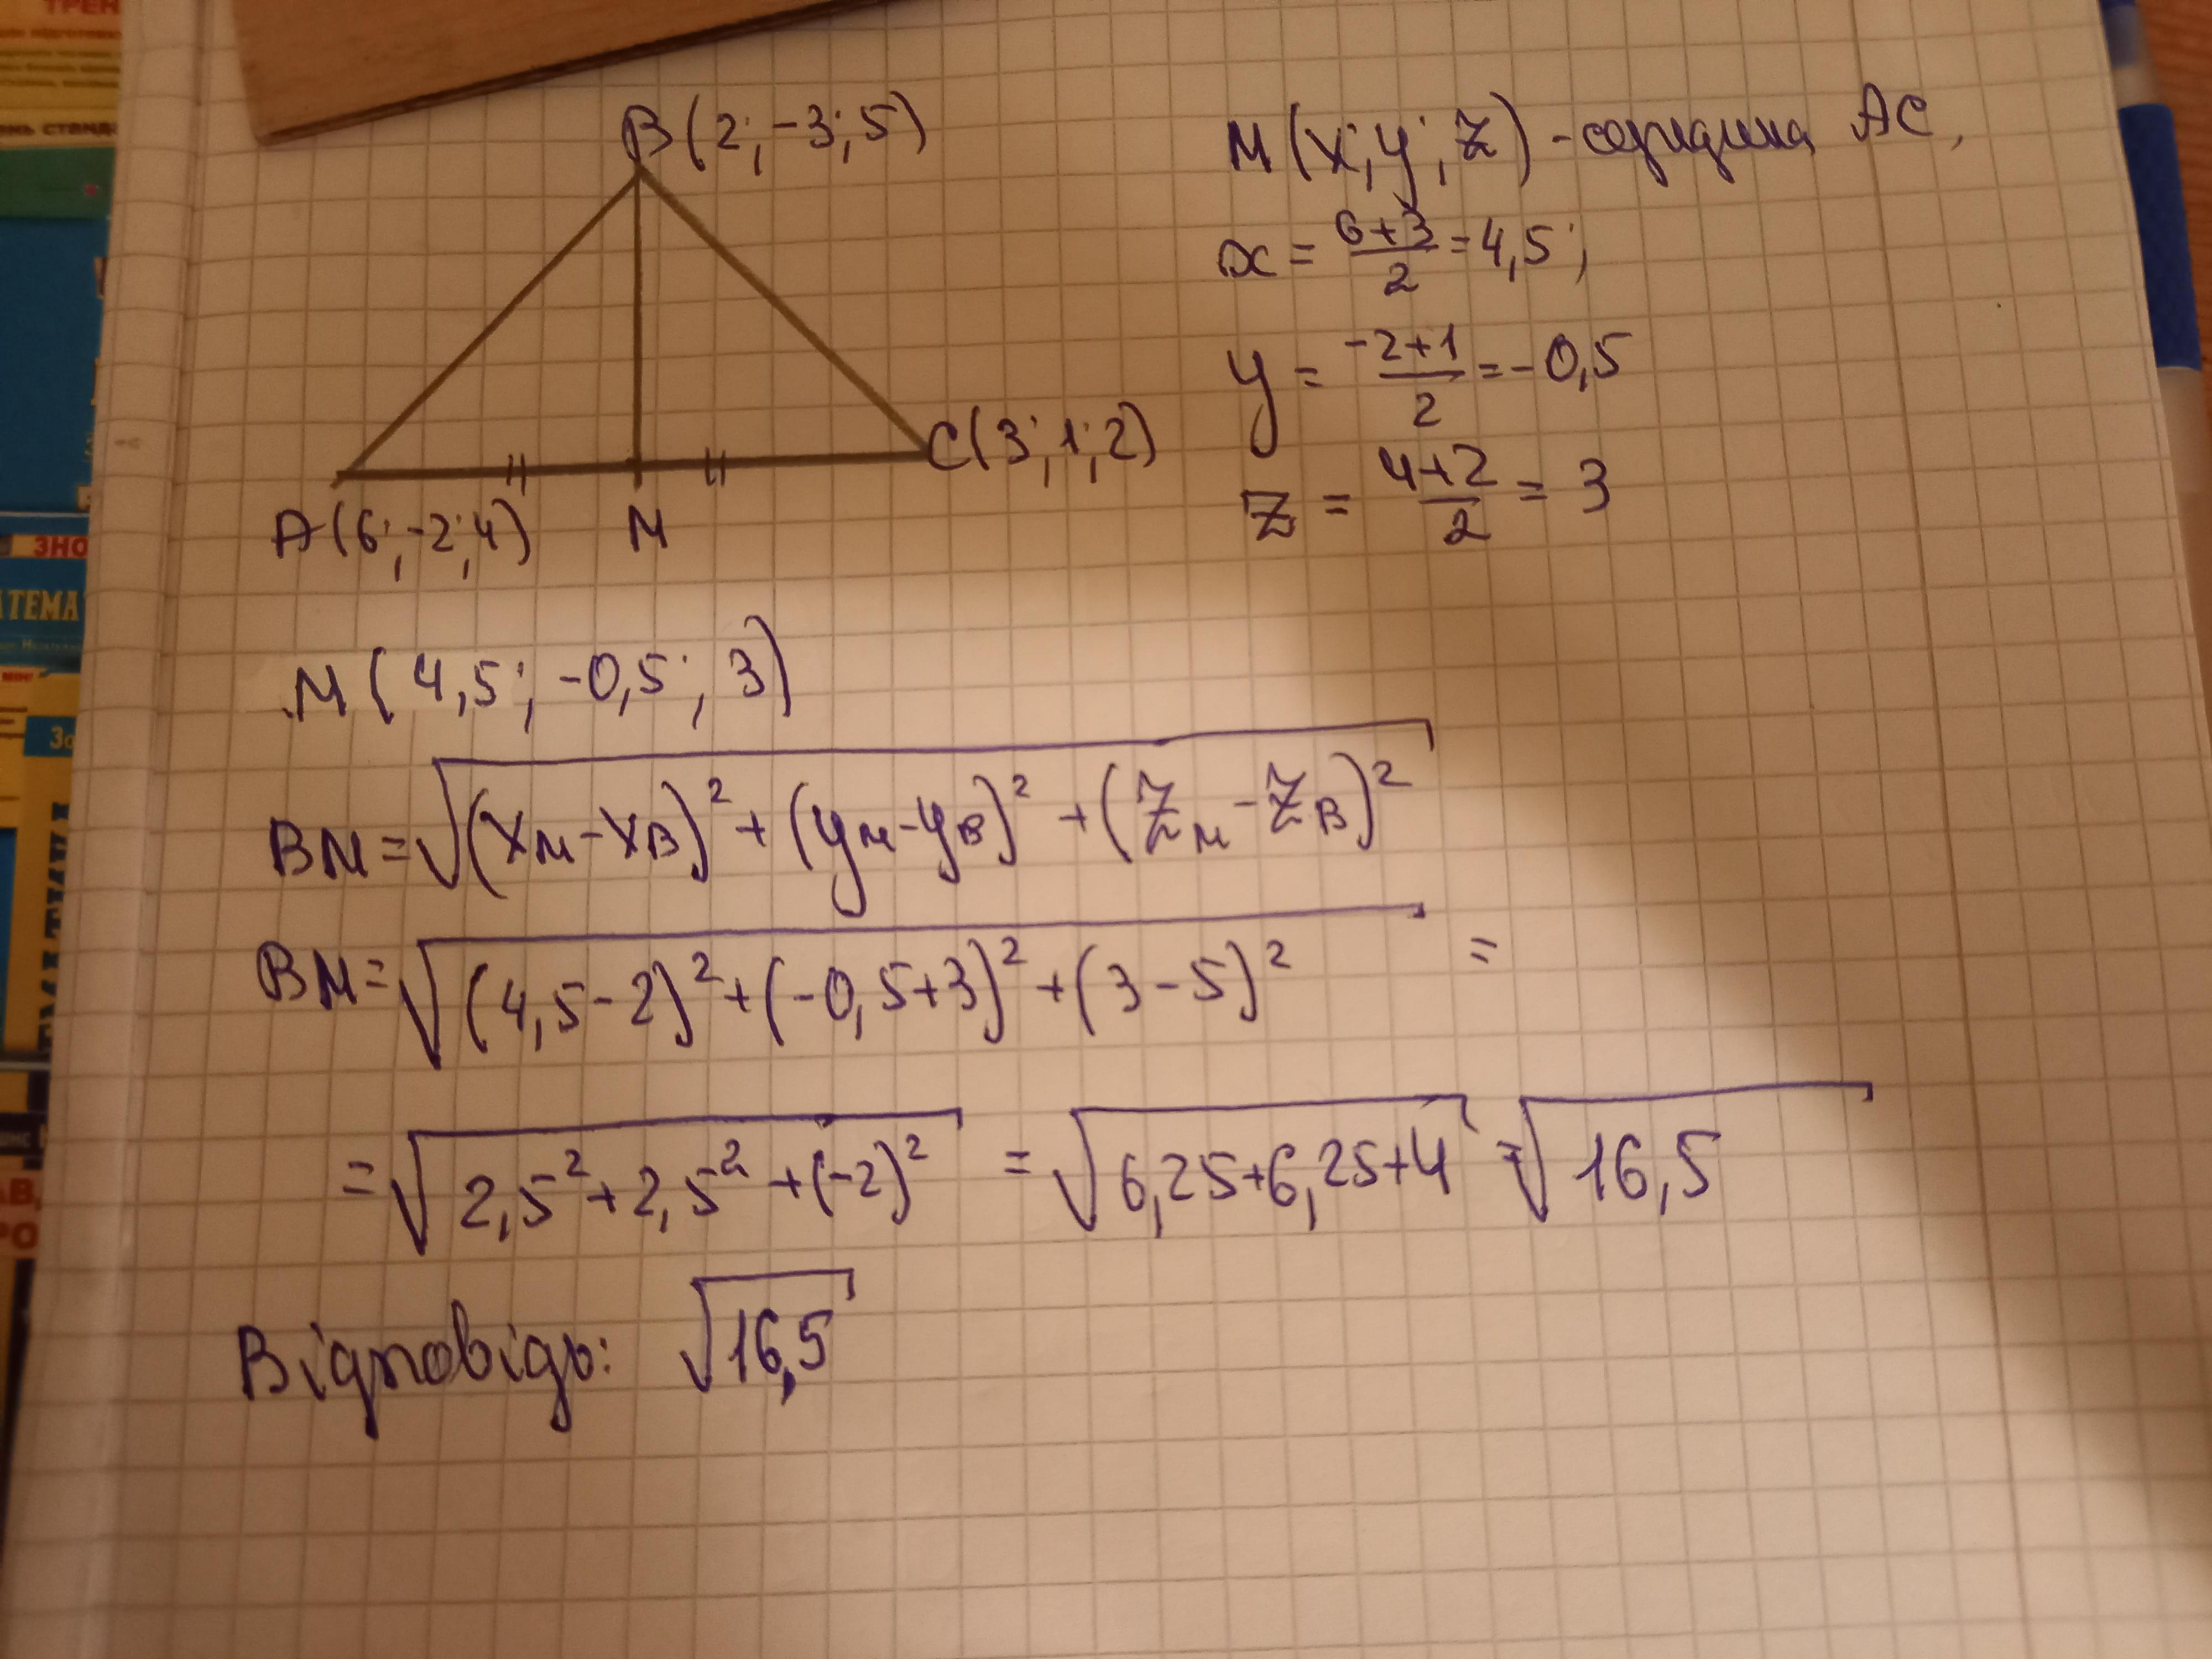 B(2; -3; 5)
C(3; 1; 2)
A(6; -2; 4)
M
M(x; y; z) - середина AC,
x = (6+3)/2 = 4,5;
y = (-2+1)/2 = -0,5
z = (4+2)/2 = 3
M(4,5; -0,5; 3)
BM = √((x_M - x_B)² + (y_M - y_B)² + (z_M - z_B)²)
BM = √((4,5-2)² + (-0,5+3)² + (3-5)²) =
= √(2,5² + 2,5² + (-2)²) = √(6,25+6,25+4) = √16,5
Відповідь: √16,5
ТРЕН
ЗНО
АТЕМА